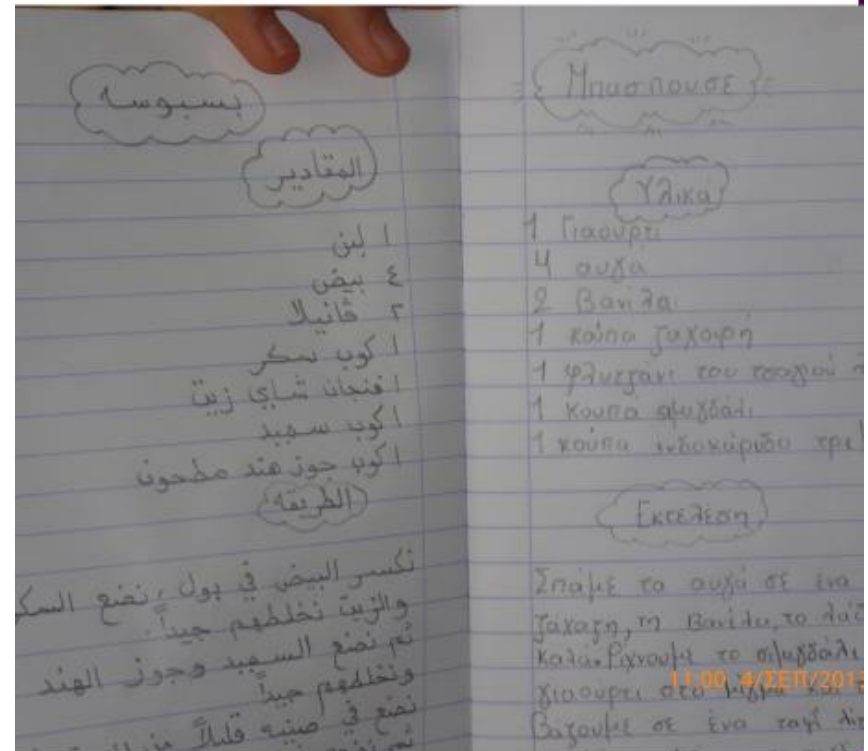 بسبوسه
المقادير
١ لبن
٤ بيض
٢ ڤانيلا
١ كوب سكر
١ فنجان شاي زيت
١ كوب سميد
١ كوب جوز هند مطحون
الطريقه
نكسر البيض في بول ، نضع السكر
والزيت نخلطهم جيداً .
ثم نضع السميد وجوز الهند
ونخلطهم جيداً
نضع في صينيه قليلاً
ثم نضع
Μπασπουσε
Υλικά
1 Γιαουρτι
4 αυγά
2 Βανίλαι
1 κούπα ζαχαρη
1 φλυτζάνι του τσαγιού
1 κουπα σιμιγδάλι
1 κούπα ινδοκάρυδο
Εκτέλεση
Σπάμε τα αυγά σε ένα
ζάχαρη, τη Βανίλια, το
καλά. Ρίχνουμε το σιμιγδάλι
γιαουρτι στο μίγμα και
Βαζουμε σε ένα ταψί
11:00 4/ΣΕΠ/2013